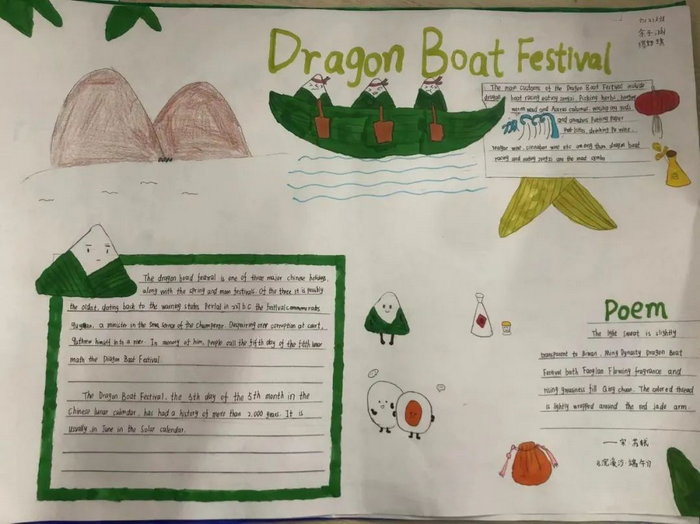 Dragon Boat Festival
The main customs of the Dragon Boat Festival include
dragon boat racing eating zongzi. Picking herbs, hanging
worm wood and Acorus calamus, worshiping gods
and ancestors Putting paper
drinking to wine,
wine, cinnabar wine etc among them dragon boat
racing and eating zongzi are the most
The dragon boad festival is one of three major chinese holidays,
along with the spring and moon festivals. Of the three it is possibly
the oldest, dating back to the warring states Period in 227 b.c. the festival commemorates
Qu yuan, a minister in the
Despairing over corruption at court,
Qu threw himself into a river. In memory of him, people call the fifth day of the fifth lunar
math the Dragon Boat Festival.
The Dragon Boat Festival, the 5th day of the 5th month in the
Chinese lunar calendar, has had a history of more than 2,000 years. It is
usually in June in the Solar calendar.
Poem
The light sweat is slightly
transparent to Biwan, Ming Dynasty Dragon Boat
Festival both Fanglan Flowing fragrance and
rising greasiness fill Qing chuan. The colored thread
is lightly wrapped around the red jade arm.
——宋·苏轼
《浣溪沙·端午》